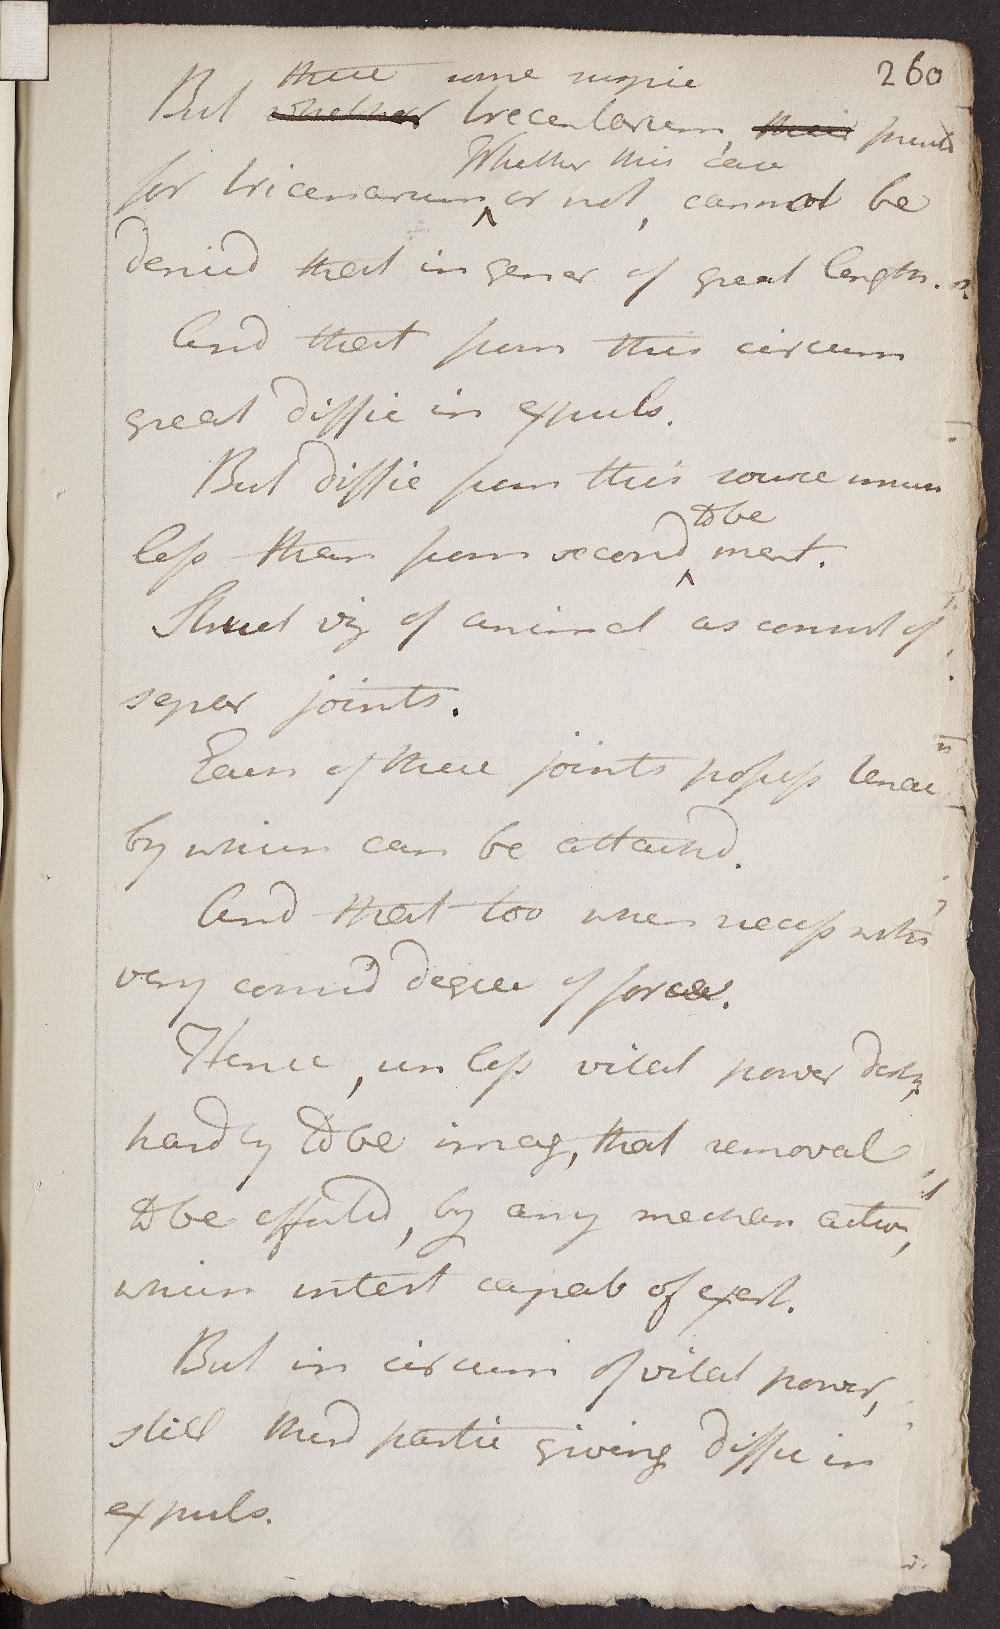 260
there some suspic
But whether trecenlarium, their
for tricenarium Whether this case or not, cannot be
denied that in gener of great length.
And that from this circum
great diffic in expuls.
But diffic from this source
less than from second to be ment.
Struct viz of animal as consist of
separ joints.
Each of these joints possess
by which can be attached.
And that too when necess with
very consid degree of force.
Hence, unless vital power
hardly to be imag, that removal
to be effected, by any mechan action,
which intest capab of exert.
But in circum of vital power,
still third partic giving diffic in
expuls.